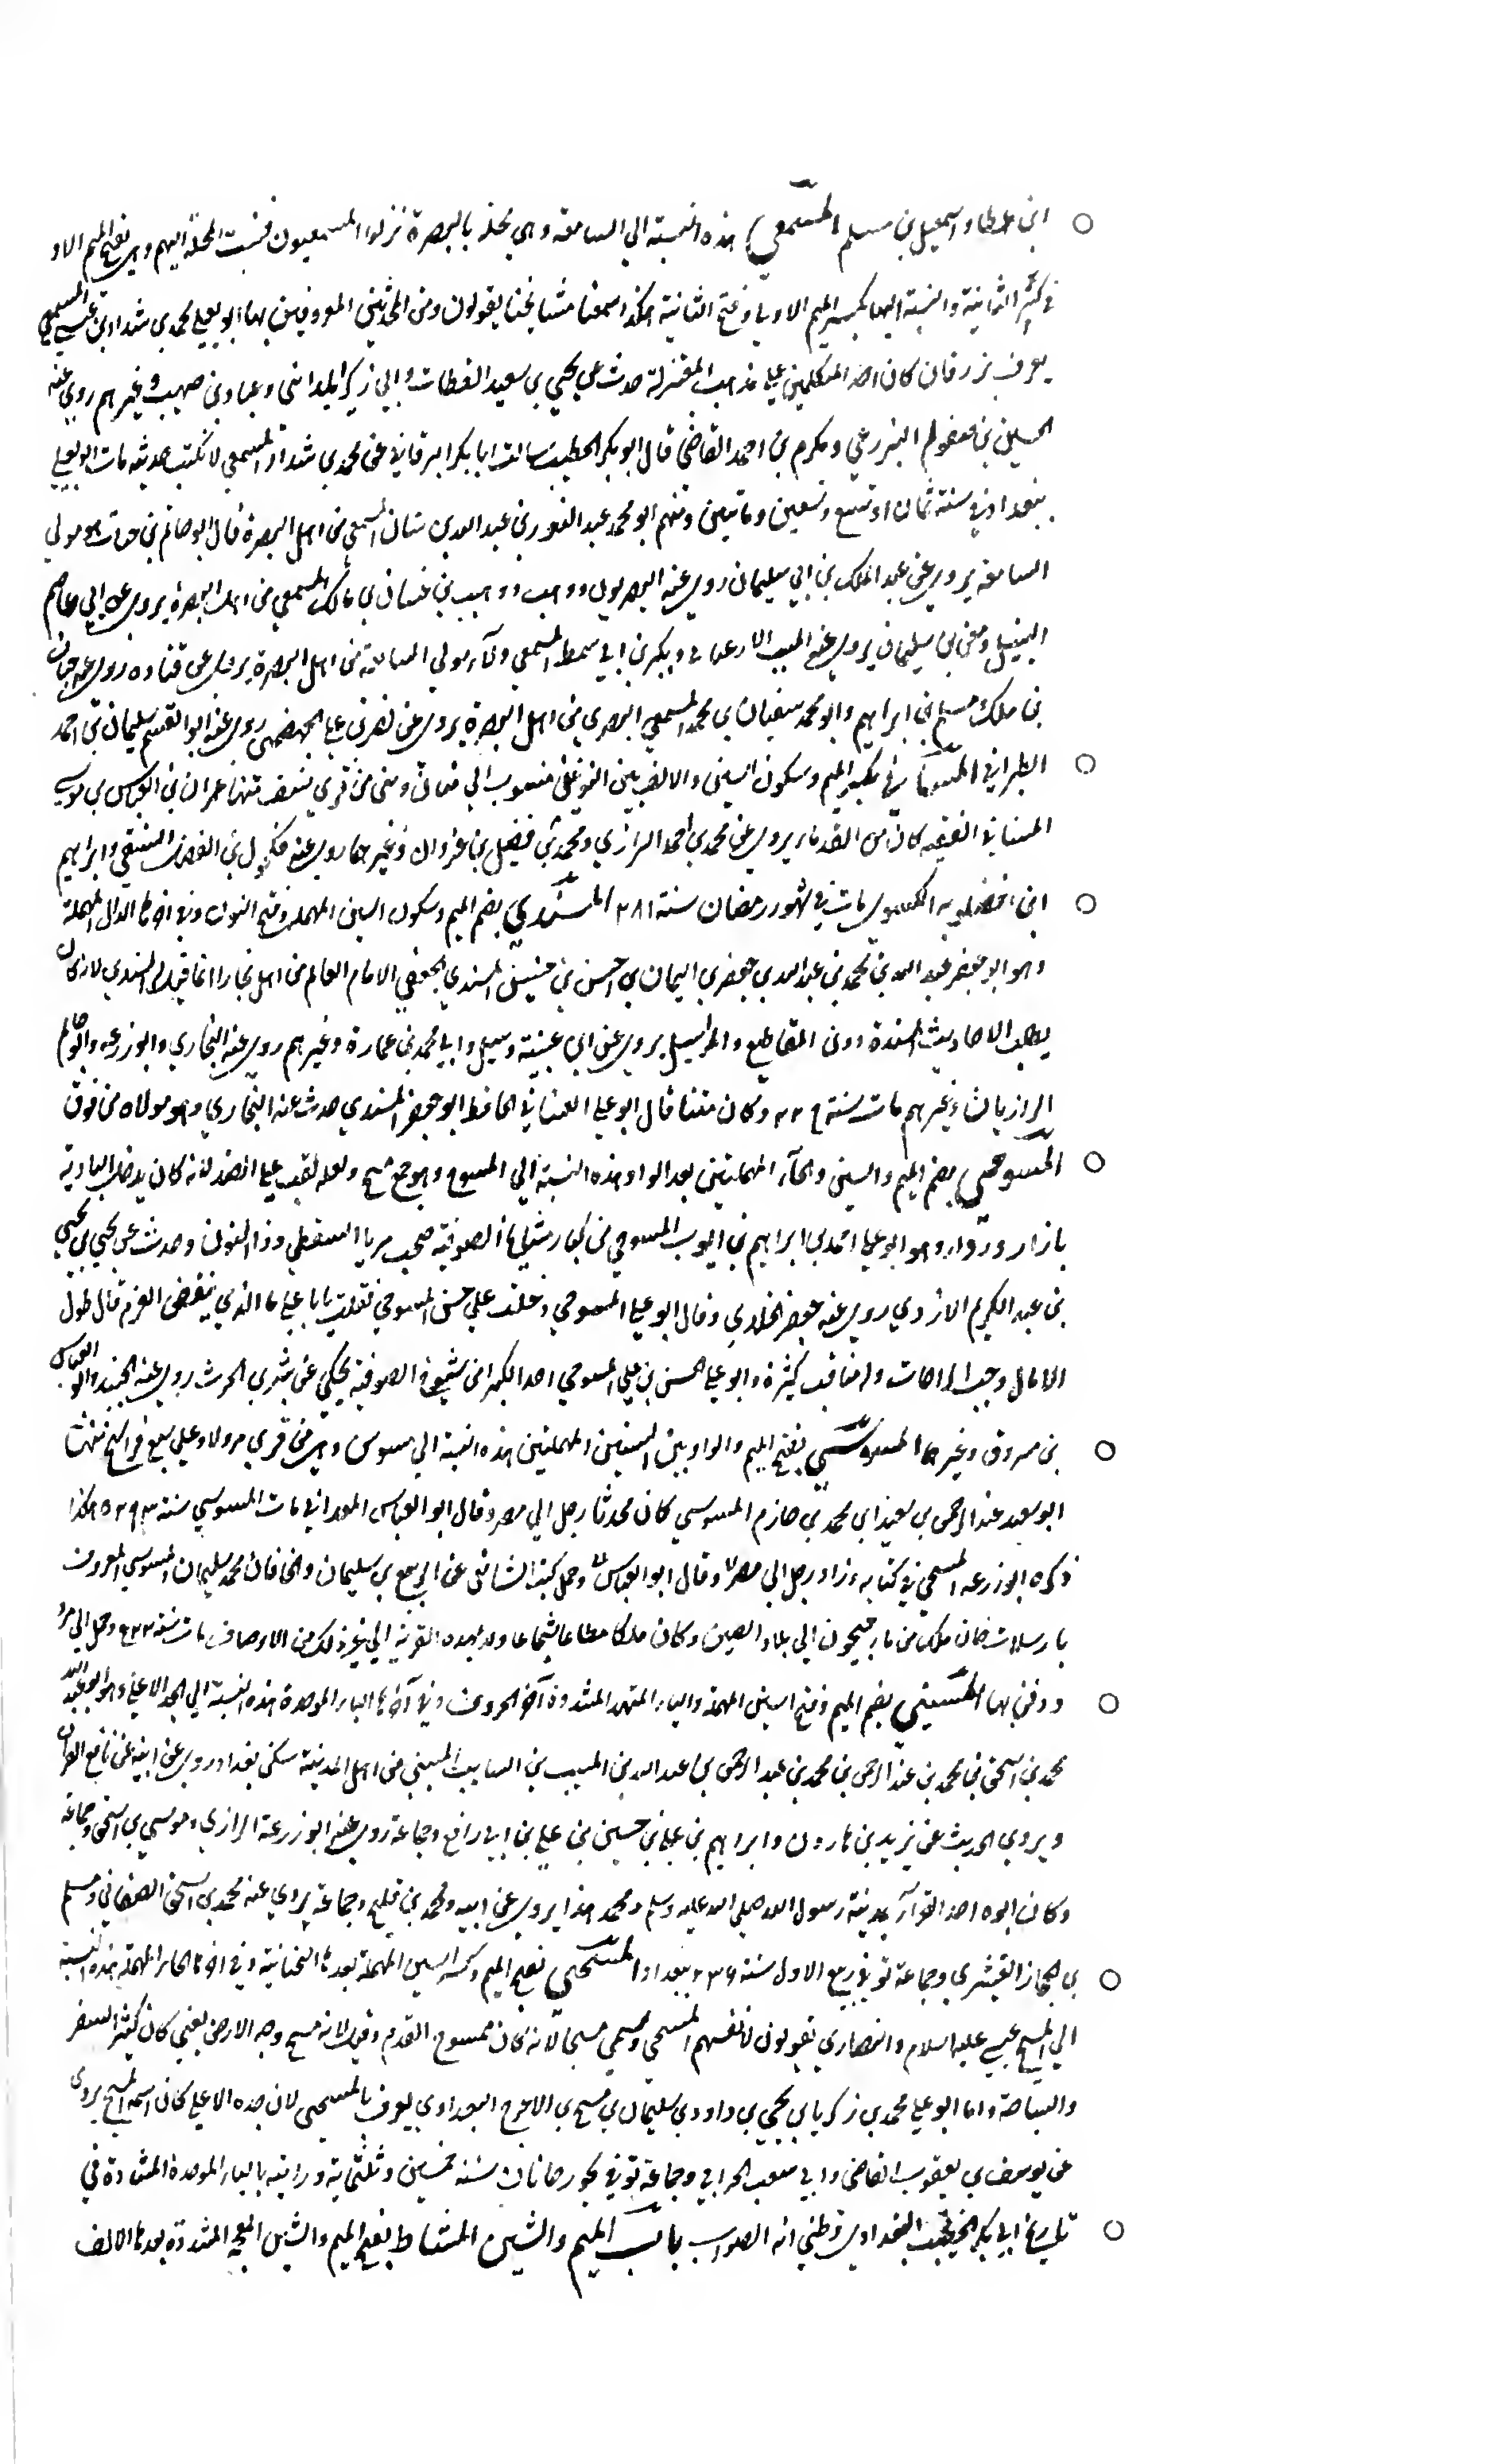 ابن عطا واسمعيل بن مسلم المسمعي هذه النسبة الي المسامعة وهي محلة بالبصرة نزلوا المسمعيون فنسبت المحلة اليهم وهي بفتح الميم الاو
في كسر الثانية والنسبة اليها بكسر الميم الاولي وفتح الثانية هكذا سمعنا مشايخنا يقولون ومن المحدثين المعروفين بها ابو يعلي محمد بن شداد بن عيسي المسمعي
يعرف بزرقان كان احد المتكلمين علي مذهب المعتزلة حدث عن يحيي بن سعيد القطان وابي زكير المدائني وعباد بن صهيب وغيرهم روي عنه
الحسين بن صفوان البرذعي ومكرم بن احمد القاضي قال ابو بكر الخطيب سالت ابا بكر البرقاني عن محمد بن شداد المسمعي لا نكتب حديثه مات ابو يعلي
ببغداد في سنة ثمان او تسع وسبعين وماتين ومنهم ابو محمد عبد الغفور بن عبد الله بن سنان المسمعي من اهل البصرة قال ابو حاتم بن حبان هو مولي
المسامعة يروي عن عبد الملك بن ابي سليمان روي عنه البصريون ووهب بن غسان بن مالك المسمعي من اهل البصرة يروي عن ابي عاصم
النبيل ومعن بن سليمان يروي عنه المسيب الارغياني وبكير بن ابي سمط المسمعي ولاء مولي المسامعة من اهل البصرة يروي عن قتاده روي عنه حبان
بن ملك ومسلم بن ابراهيم وابو محمد سفيان بن محمد المسمعي البصري من اهل البصرة يروي عن نصر بن علي الجهضمي روي عنه ابو القسم سليمان بن احمد
الطبراني المسناني بكسر الميم وسكون السين والالف بين النونين منسوب الي مسنان وهي من قري نسف منها عمران بن العباس بن موسي
المسناني الفقيه كان من القدماء يروي عن محمد بن احمد الرازي ومحمد بن فضيل بن غزوان وغيرهما روي عنه مكحول بن الفضل النسفي وابراهيم
ابن مات في شهور رمضان سنة ٢٨١ المسندي بضم الميم وسكون السين المهملة وفتح النون وفي اخرها الدال المهملة
وهو ابو جعفر عبد الله بن محمد بن عبد الله بن جعفر بن اليمان بن اخنس بن خنيس المسندي الجعفي الامام العالم من اهل بخارا انما قيل له المسندي لانه كان
يطلب الاحاديث المسندة دون المقاطيع والمراسيل يروي عن ابن عيينة وابي محمد بن عمارة وغيرهم روي عنه البخاري وابو زرعه وابو حاتم
الرازيان وغيرهم مات سنة ٢٢٩ وكان متقنا قال ابو علي الغساني الحافظ ابو جعفر المسندي حدث عنه البخاري وهو مولاه من فوق
المسوحي بضم الميم والسين والحاء المهملتين بعد الواو هذه النسبة الي المسوح وهو جمع مسح ولعله لقب علي الضد لانه كان يدخل البادية
بازار ورداء وهو ابو علي احمد بن ابراهيم بن ايوب المسوحي من كبار مشايخ الصوفية صحب سريا السقطي وذا النون وحدث عن يحيي بن يحيي
بن عبد الكريم الازدي روي عنه جعفر الخلدي وقال ابو علي المسوحي دخلت علي حسن المسوحي فقلت يا ابا علي ما الذي ينقض العزم قال طول
الامال وحب الراحات وله مناقب كثيرة وابو علي الحسن بن علي المسوحي احد الكبراء من شيوخ الصوفية يحكي عن بشر بن الحرث روي عنه الجنيد وابو العباس
بن مسروق وغيرهما المسوسي بفتح الميم والواو بين السينين المهملتين هذه النسبة الي مسوس وهي من قري مرو لاد علي سبع فراسخ منها
ابو سعيد عبد الرحمن بن سعيد ابن محمد بن حازم المسوسي كان محدثا رحل الي مصر وقال ابو العباس المعداني مات المسوسي سنة ٢٩٣ هكذا
ذكره ابو زرعه المسيحي في كتابه وزاد رحل الي مصر وقال ابو العباس وحمل كتب الشافعي عن الربيع بن سليمان والخاقان محمد سليمان المسوسي المعروف
بارسلان خان ملك من ما بجيحون الي بلاد الصين وكان ملكا مطاعا شجاعا ولد بهذه القرية الي غير ذلك من الاوصاف مات سنة ٥٢٤ وحمل الي مرو
ودفن بها المسيبي بضم الميم وفتح السين المهملة والياء المشددة آخر الحروف وفي آخرها الباء الموحدة هذه النسبة الي الجد الاعلي وهو ابو عبد الله
محمد بن اسحق بن محمد بن عبد الرحمن بن محمد بن عبد الرحمن بن عبد الله بن المسيب بن السايب المسيبي من اهل المدينة سكن بغداد روي عن ابيه عن نافع القران
ويروي الحديث عن يزيد بن هارون وابراهيم بن علي بن حسين بن علي بن ابي رافع وجماعة روي عنه ابو زرعة الرازي وموسي بن اسحق وجماعة
وكان ابوه احد القراء بمدينة رسول الله صلي الله عليه وسلم ومحمد هذا يروي عن ابيه ومحمد بن فليح وجماعة يروي عنه محمد بن اسحق الصغاني ومسلم
بن الحجاج القشيري وجماعة توفي في ربيع الاول سنة ٢٣٦ ببغداد المسيحي بفتح الميم وكسر السين المهملة بعدها التحتانية وفي اخرها الحاء المهملة هذه النسبة
الي المسيح عيسي عليه السلام والنصاري يقولون لانفسهم المسيحي وسمي مسيحا لانه كان ممسوح القدم وقيل لانه مسح وجه الارض يعني كان كثير السفر
والسياحة واما ابو علي محمد بن زكريا بن يحيي بن داود بن سليمان بن مسيح بن الاعرج البغدادي يعرف بالمسيحي لان جده الاعلي كان اسمه المسيح يروي
عن يوسف بن يعقوب القاضي وابي شعيب الحراني وجماعة توفي بخور سنة خمسين وثلثماية ورايته بالباء الموحدة المشددة في
تاريخ ابي بكر الخطيب البغدادي وظني انه الصواب باب الميم والشين المشاط بفتح الميم والشين المعجمه المشددة بعدها الالف